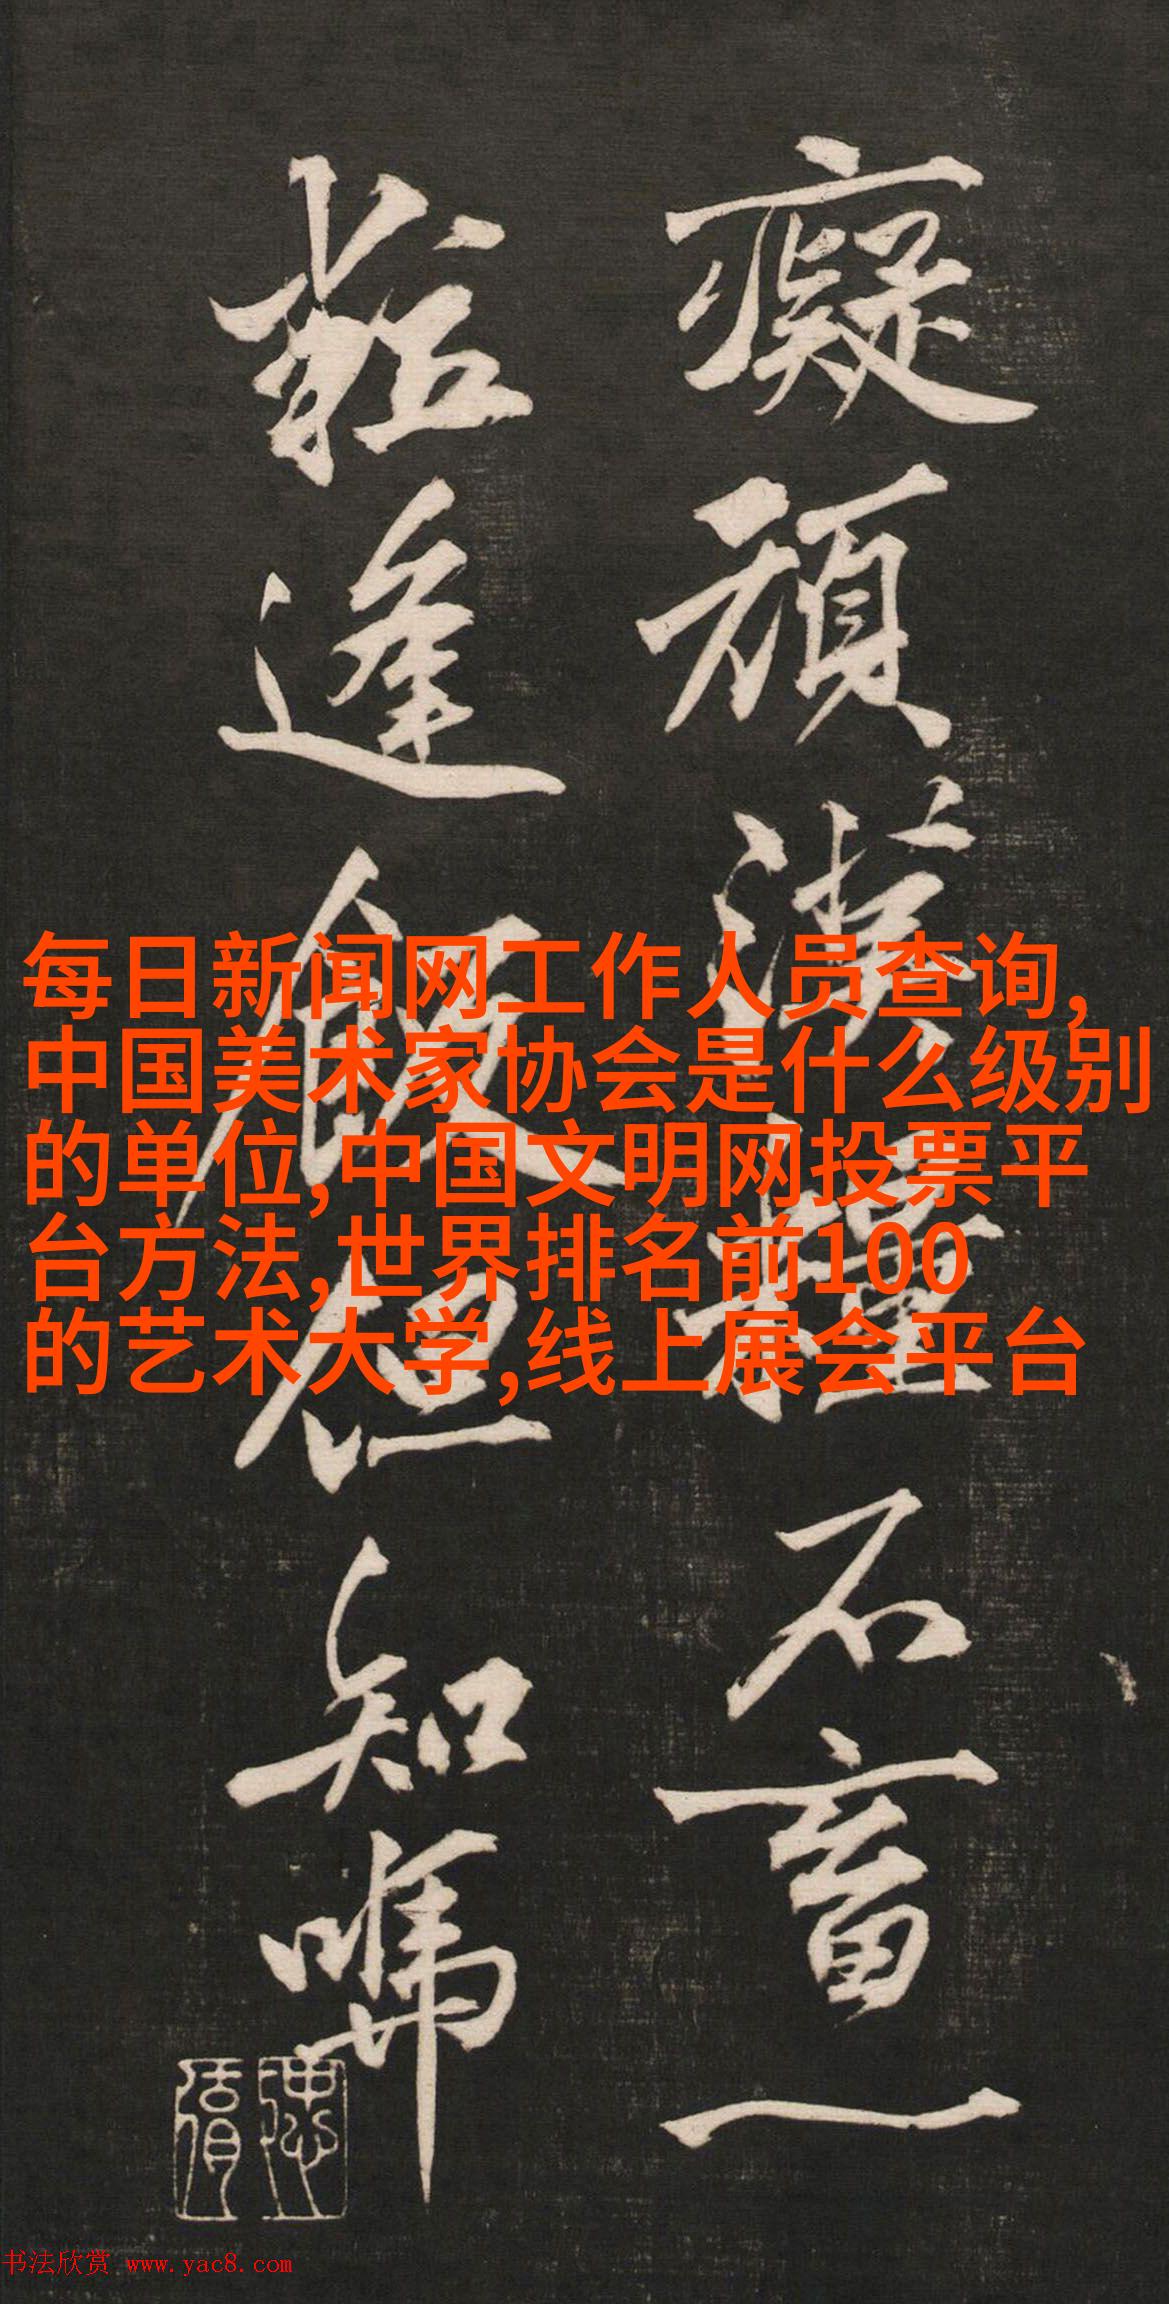 每日新闻网工作人员查询,
中国美术家协会是什么级别
的单位,中国文明网投票平
台方法,世界排名前100
的艺术大学,线上展会平台
癡頑漢
石畜一
逢飯但知嘴
书法欣赏 www.yac8.com